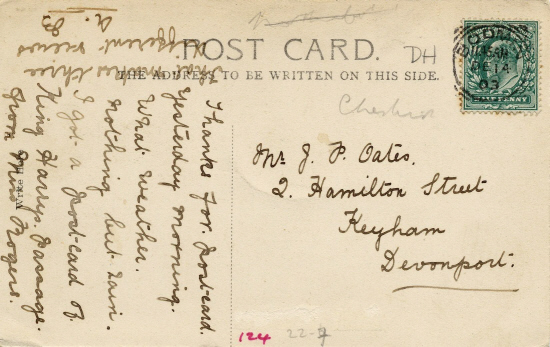 POST CARD.
THE ADDRESS TO BE WRITTEN ON THIS SIDE.
DH
Cheshire
HALFPENNY
Thanks for Post-card.
Yesterday morning.
What weather.
nothing but rain.
I got a Post-card of
King Harrys Passage.
from Miss Rogers.
that makes three
different views
Mr J. P. Oates.
2. Hamilton Street
Keyham
Devonport.
Write Here
124
22-9